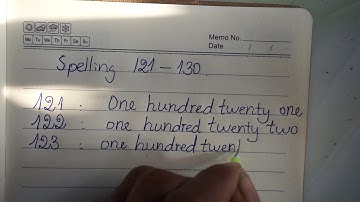 Memo No.
Mo Tu We Th Fr Sa Su
Date / /
Spelling 121 - 130.
121 : One hundred twenty one
122 : one hundred twenty two
123 : one hundred twen